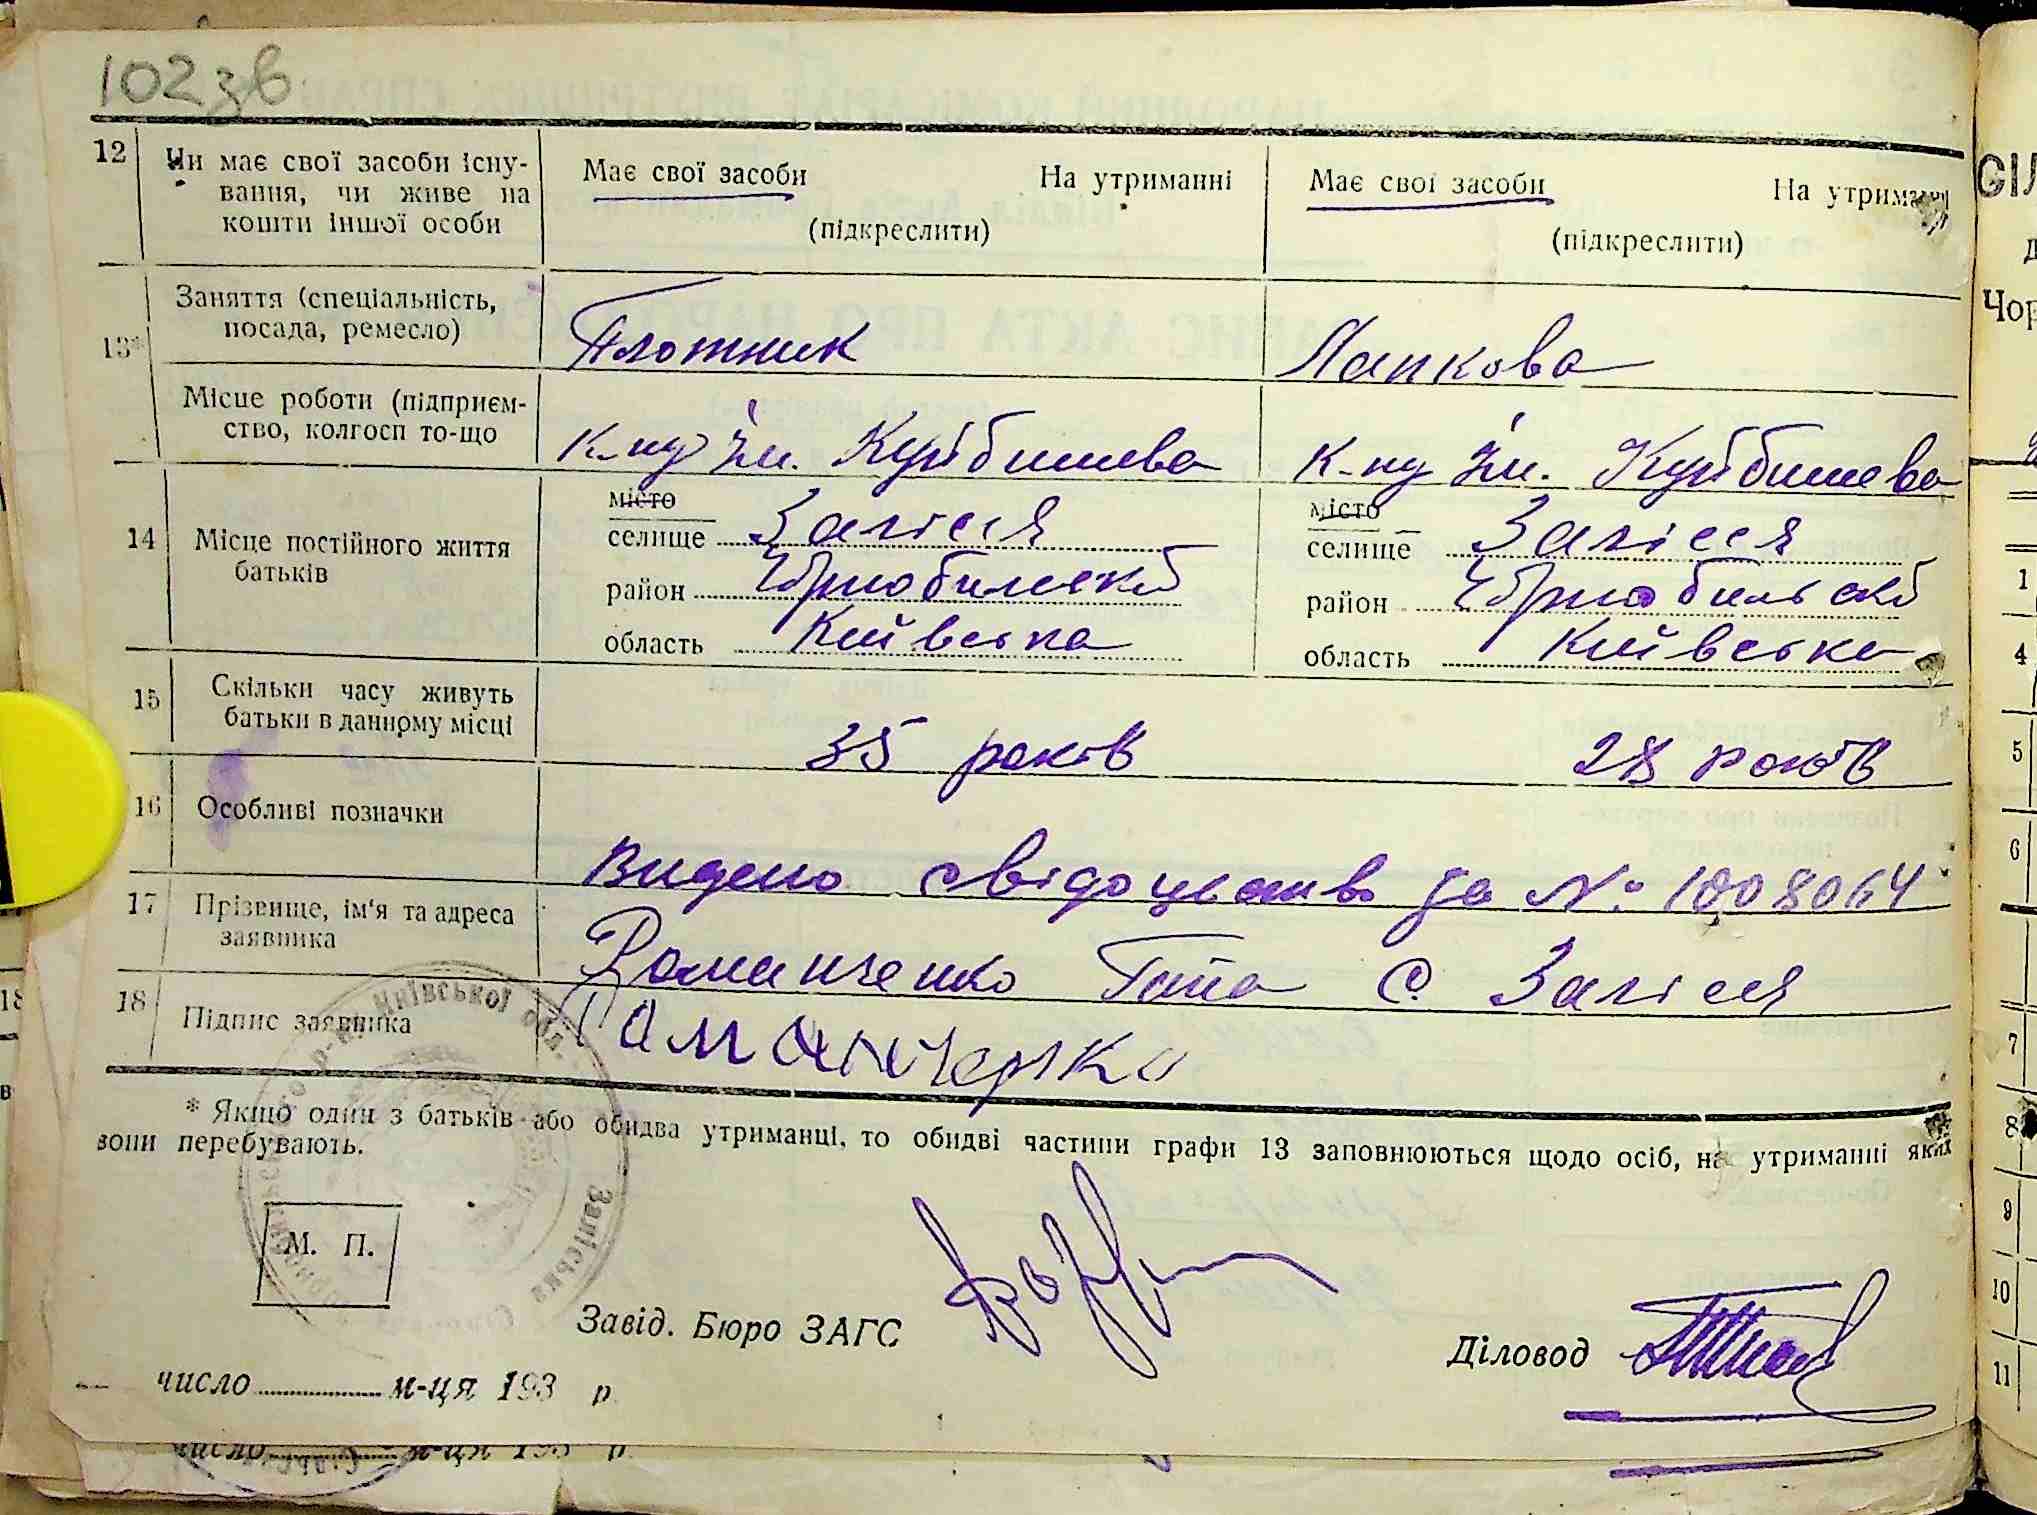 102 зв
12 Чи має свої засоби існу-
вання, чи живе на
кошти іншої особи
Має свої засоби На утриманні
(підкреслити)
Має свої засоби На утриманні
(підкреслити)
13* Заняття (спеціальність,
посада, ремесло)
Плотник
Ланкова
Місце роботи (підприєм-
ство, колгосп то-що
К-пу ім. Куйбишева
К-пу ім. Куйбишева
14 Місце постійного життя
батьків
місто
селище Залісся
район Чорнобильский
область Київська
місто
селище Залісся
район Чорнобильский
область Київська
15 Скільки часу живуть
батьки в данному місці
35 років
28 років
16 Особливі позначки
Видено свідоцтво за №: 1008064
17 Прізвище, ім'я та адреса
заявника
Романченко С. Залісся
18 Підпис заявника
Романченко
* Якщо один з батьків або обидва утриманці, то обидві частини графи 13 заповнюються щодо осіб, на утриманні яких
вони перебувають.
М. П.
Завід. Бюро ЗАГС
Діловод
число м-ця 193 р.
число м-ця 193 р.
Київської обл.
Заліська
СІЛ
Чор
1
4
5
6
7
8
9
10
11